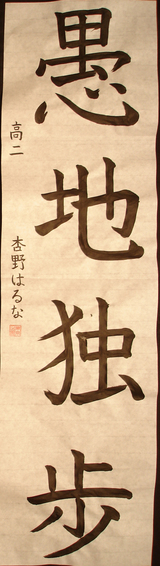 愚地独歩
高二 杏野はるな